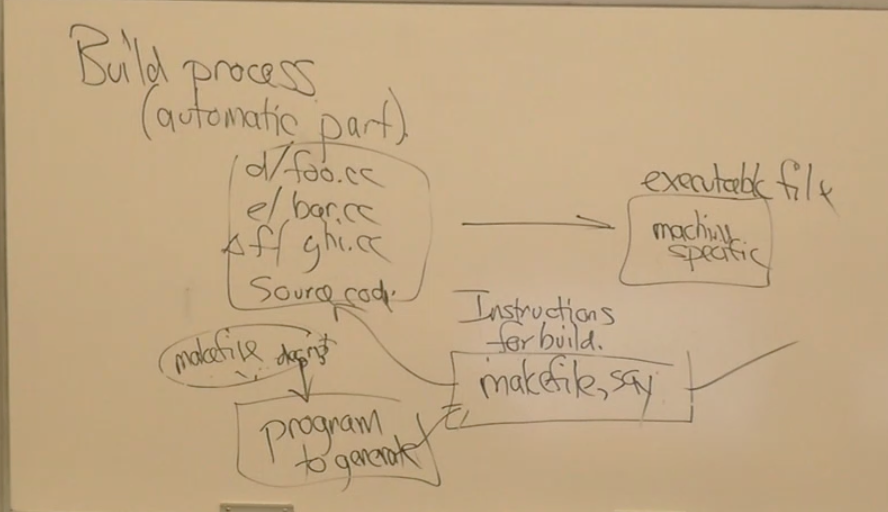 Build process
(automatic part).
d/foo.cc
e/bar.cc
f/ghi.cc
Source code
executable file
machine
specific
Instructions
for build.
makefile, say
makefile
program
to generate